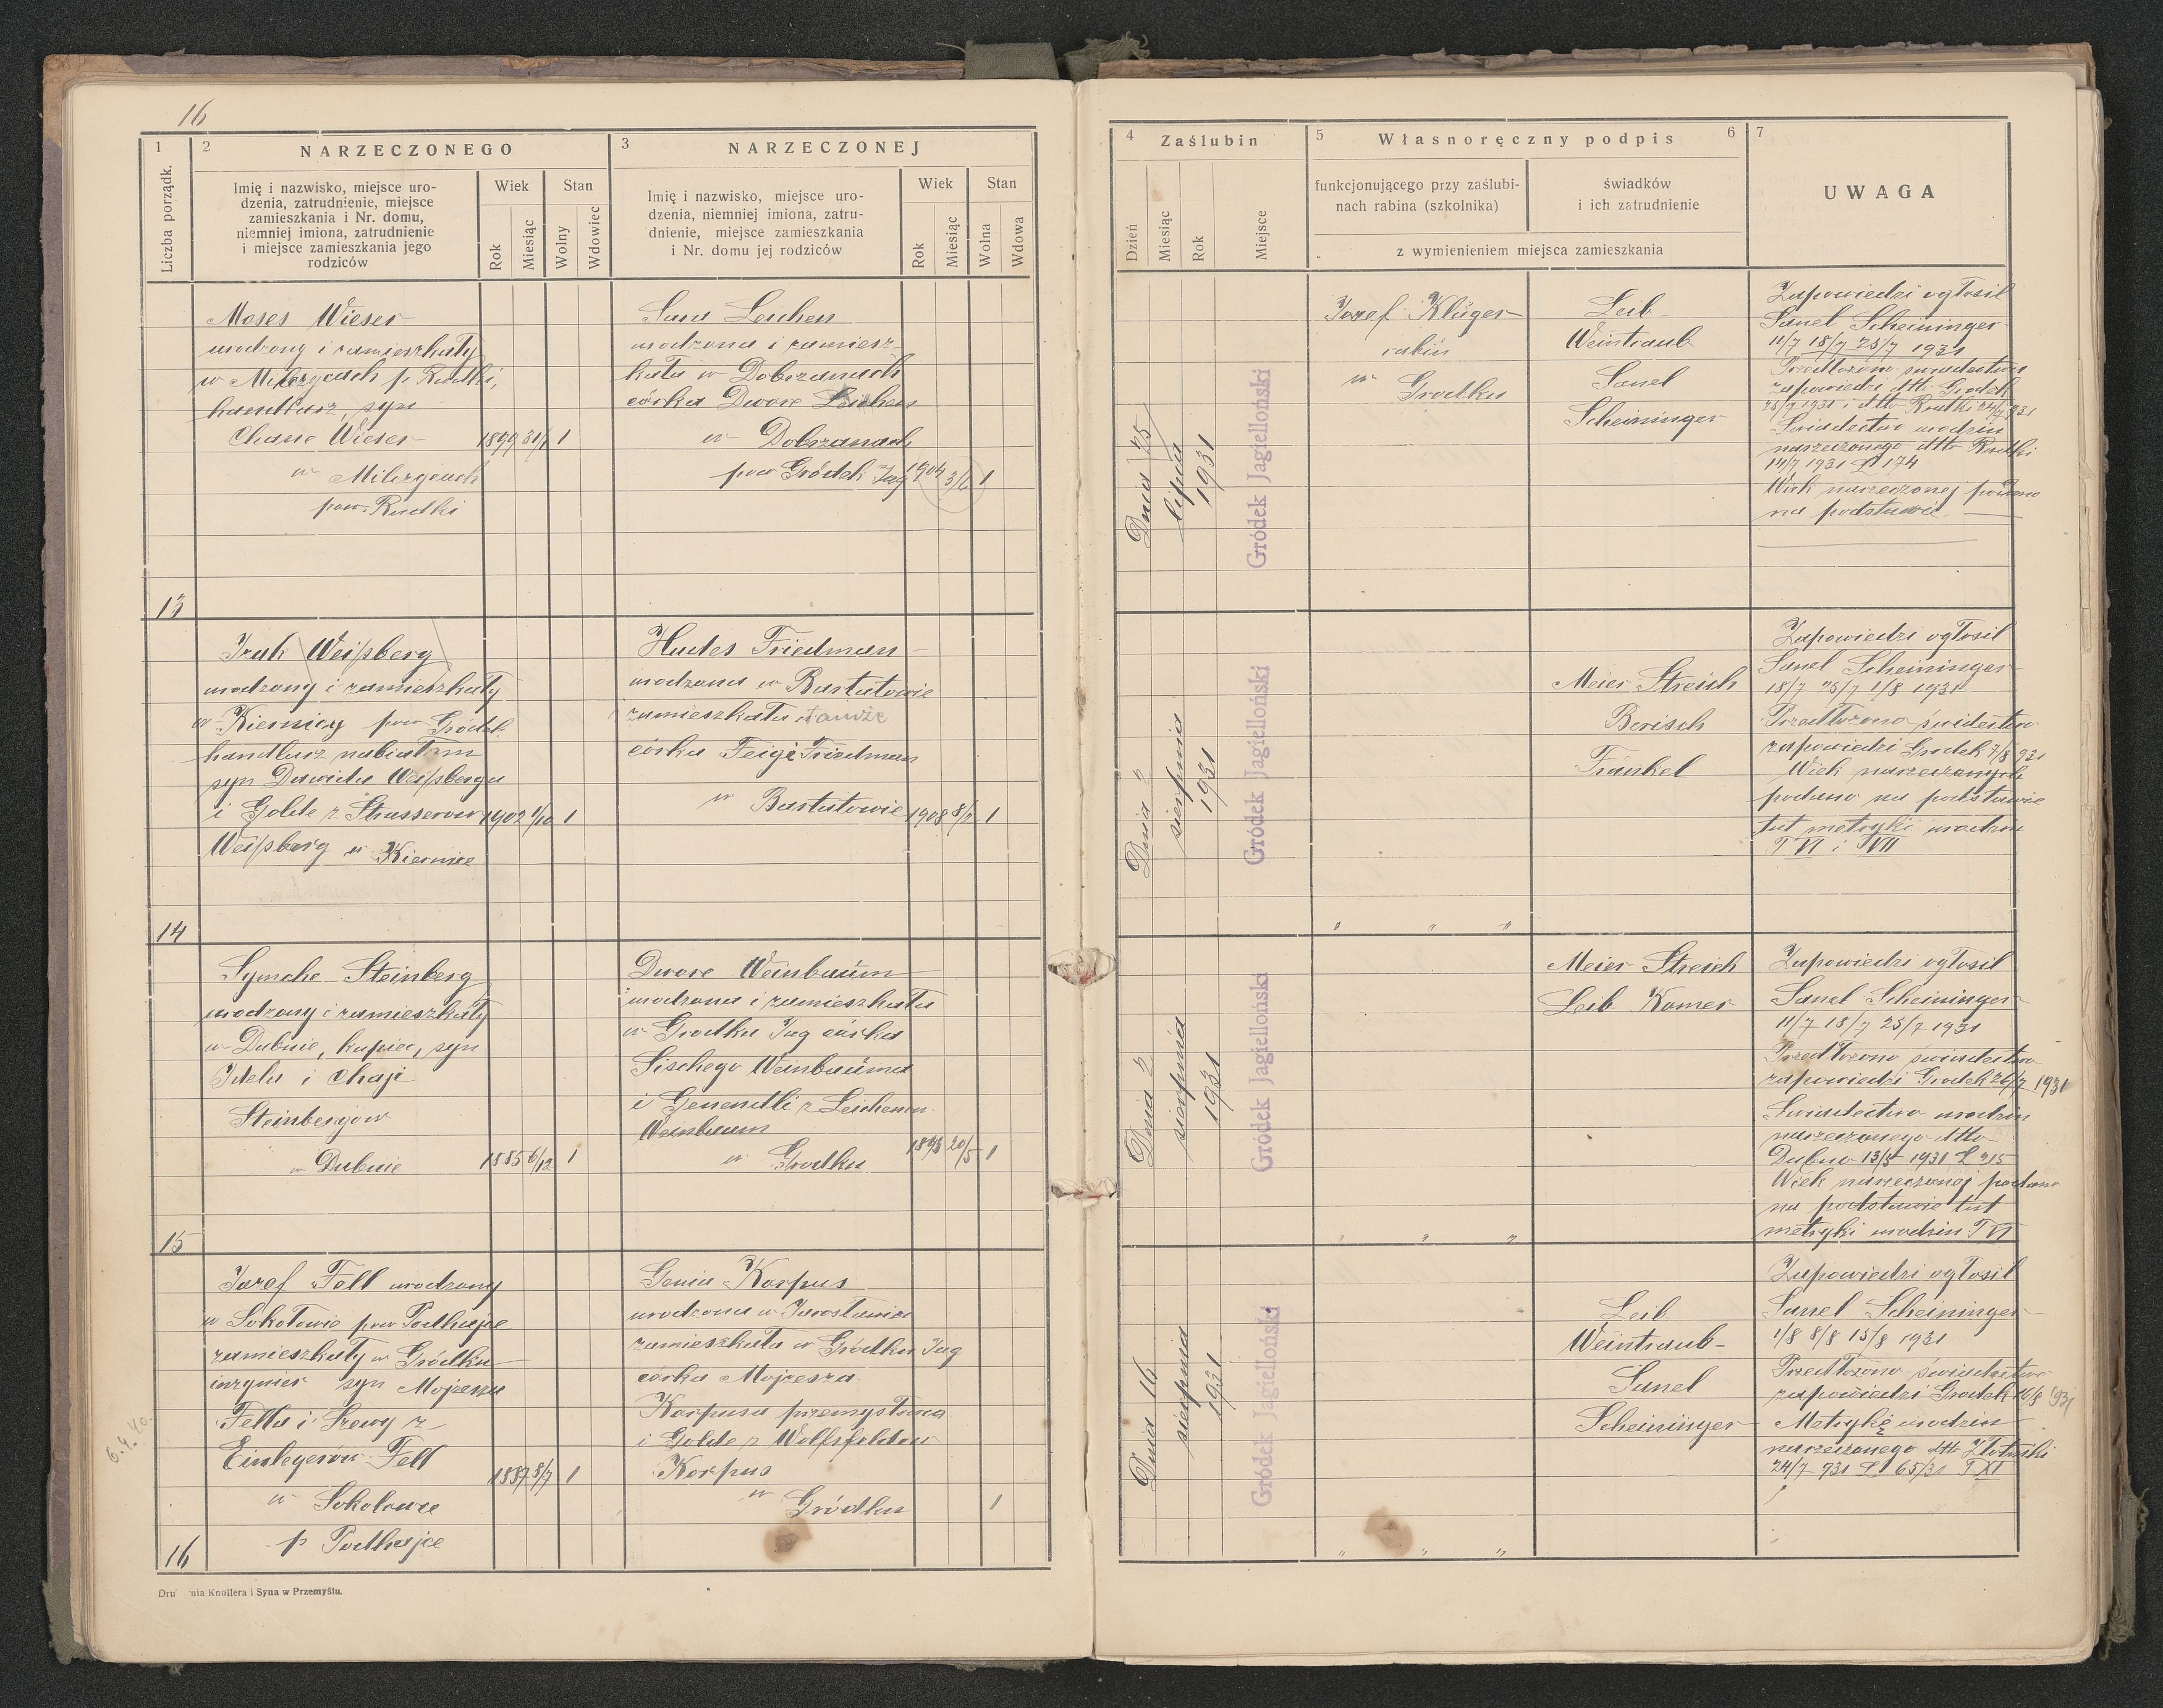 16
1
2
NARZECZONEGO
3
NARZECZONEJ
Liczba porządk.
Imię i nazwisko, miejsce uro-
dzenia, zatrudnienie, miejsce
zamieszkania i Nr. domu,
niemniej imiona, zatrudnienie
i miejsce zamieszkania jego
rodziców
Wiek
Stan
Rok
Miesiąc
Wolny
Wdowiec
Imię i nazwisko, miejsce uro-
dzenia, niemniej imiona, zatru-
dnienie, miejsce zamieszkania
i Nr. domu jej rodziców
Wiek
Stan
Rok
Miesiąc
Wolna
Wdowa
Moses Wieser
urodzony i zamieszkały
w Milczycach p. Rudki,
handlarz, syn
Chane Wieser
1899 31/1 1
w Milczycach
pow. Rudki
13
Sara Leichen
urodzona i zamiesz-
kała w Dobrzanach
córka Dwore Leichen
w Dobrzanach
pow Gródek Jag 1904 3/6 1
Izak Weißberg
urodzony i zamieszkały
w Kiernicy pow Gródek
handlarz nabiałem
syn Dawida Weißberga
i Golde z Strasserów 1902 1/10 1
Weißberg w Kiernice
14
Hudes Friedman
urodzona w Bartatowie
zamieszkała tamże
córka Feigi Friedman
w Bartatowie 1908 8/2 1
Symche Steinberg
urodzony i zamieszkały
w Dubnie, kupiec, syn
Idela i Chaji
Steinbergów
w Dubnie 1885 6/12 1
15
Dwore Weinbaum
urodzona i zamieszkała
w Grodku Jag córka
Sischego Weinbauma
i Genendli z Leichenów
Weinbaum
w Grodku 1893 20/5 1
Jozef Fell urodzony
w Sokołowie pow Podhajce
zamieszkały w Gródku
inżynier syn Mojżesza
Fella i Szewy z
Einlegerów Fell
1887 8/7 1
w Sokołowie
p Podhajce
16
Genia Korpus
urodzona w Jarosławiu
zamieszkała w Gródku Jag
córka Mojżesza
Korpusa przemysłowca
i Golde z Wolfsfeldów
Korpus
w Gródku
1
6.4.40.
Knollera i Syna w Przemyślu.
4
Zaślubin
Dzień
Miesiąc
Rok
Miejsce
5
Własnoręczny podpis
6
funkcjonującego przy zaślubi-
nach rabina (szkolnika)
świadków
i ich zatrudnienie
z wymienieniem miejsca zamieszkania
7
UWAGA
Dnia 25
lipca
1931
Gródek Jagielloński
Jozef Klüger
rabin
w Grodku
Leib
Weintraub
Sanel
Scheininger
Zapowiedzi ogłosił
Sanel Scheininger
11/7 18/7 25/7 1931
Przedłożono świadectwa
zapowiedzi dtto Grodek
25/7 1931 i dtto Rudki 24/7 931
Świadectwo urodzin
narzeczonego dtto Rudki
14/7 1931 L 174
Wiek narzeczonej podano
na podstawie
Dnia 2
sierpnia
1931
Gródek Jagielloński
" " "
Meier Streich
Berisch
Fränkel
Zapowiedzi ogłosił
Sanel Scheininger
18/7 25/7 1/8 1931
Przedłożono świdectwo
zapowiedzi Grodek 7/8 931
Wiek narzeczonych
podano na podstawie
tut metryki urodzin
T VI i TVII
Dnia 2
sierpnia
1931
Gródek Jagielloński
" " "
Meier Streich
Leib Kamer
Zapowiedzi ogłosił
Sanel Scheininger
11/7 18/7 25/7 1931
Przedłożono świadectwo
zapowiedzi Grodek 26/7 1931
Świadectwo urodzin
narzeczonego dtto
Dubno 13/5 1931 L 215
Wiek narzeczonej podano
na podstawie tut
metryki urodzin T VI
Dnia 16
sierpnia
1931
Gródek Jagielloński
" " "
Leib
Weintraub
Sanel
Scheininger
Zapowiedzi ogłosił
Sanel Scheininger
1/8 8/8 15/8 1931
Przedłożono świadectwo
zapowiedzi Grodek 16/8 931
Metrykę urodzin
narzeczonego dtto Złotniki
24/7 931 L 65/31 T XI